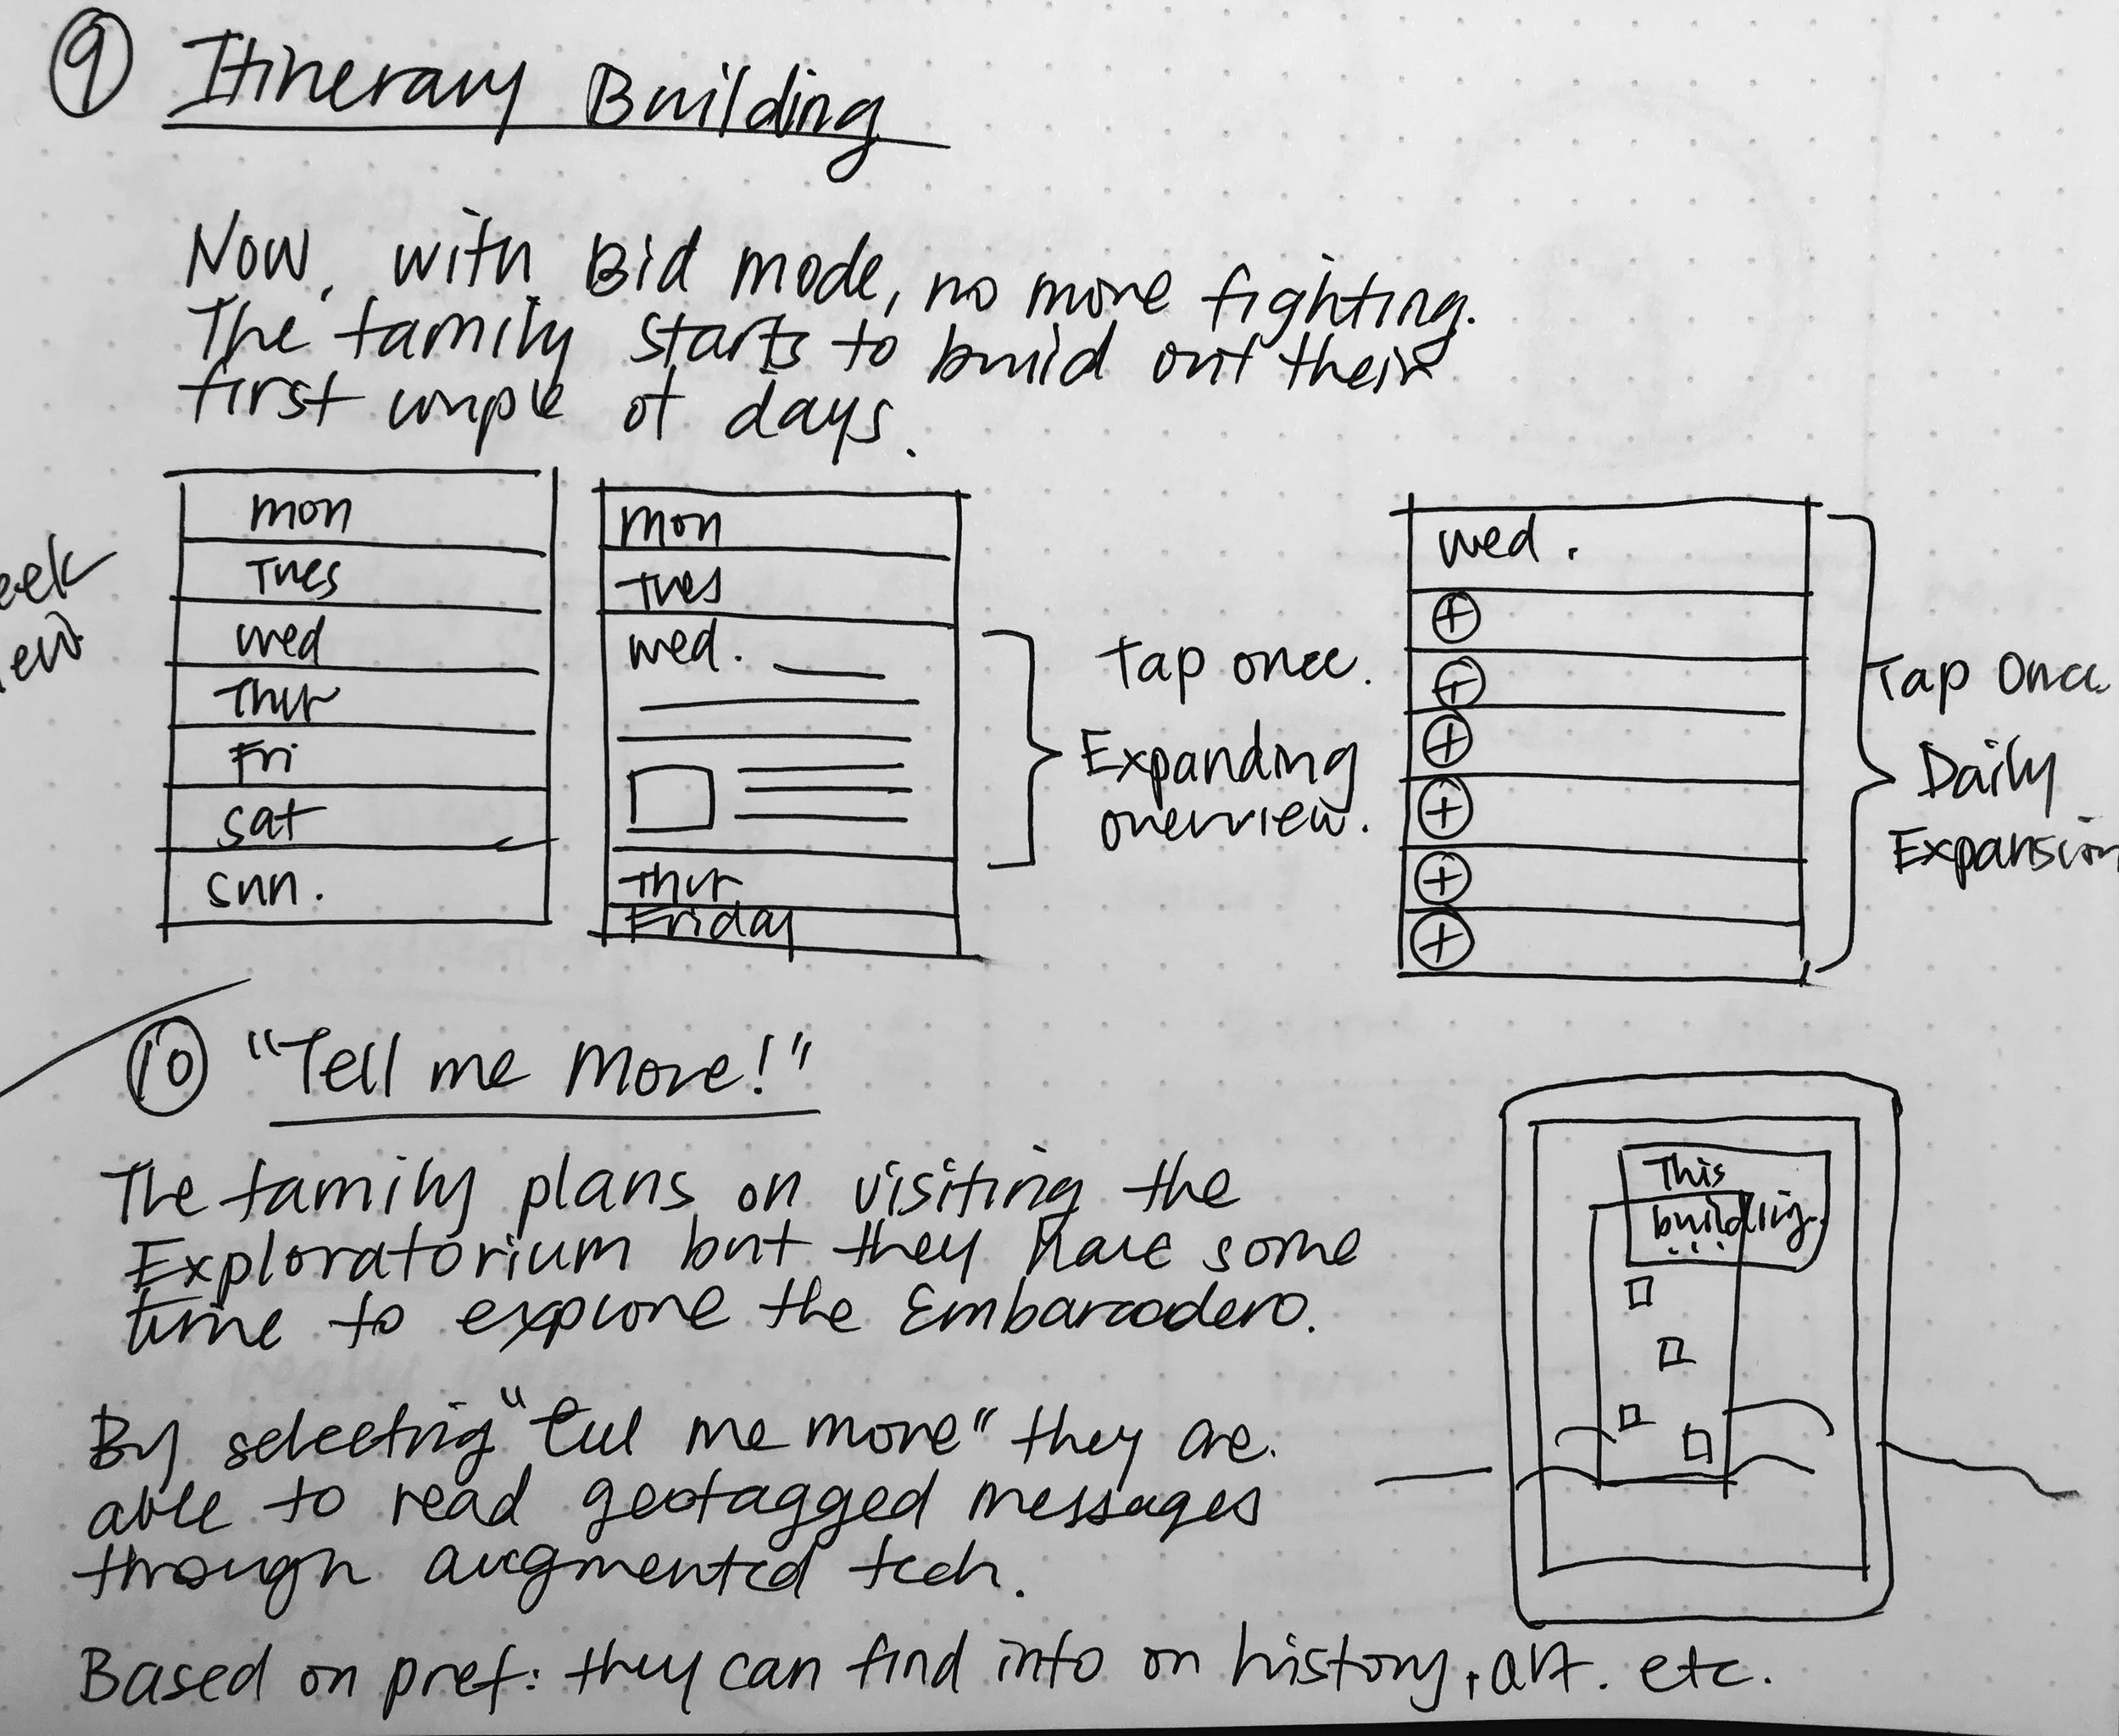 9 Itinerary Building
Now, with Bid mode, no more fighting.
The family starts to build out their
first couple of days.
eek
ew
mon
Tues
wed
Thur
Fri
sat
sun.
mon
Tues
wed.
Thur
Friday
Tap once.
Expanding
overview.
wed.
Tap Once
Daily
Expansion
10 "Tell me More!"
The family plans on visiting the
Exploratorium but they have some
time to explore the Embarcadero.
By selecting "tell me more" they are.
able to read geotagged messages
through augmented tech.
Based on pref: they can find info on history, art. etc.
This
building.
...